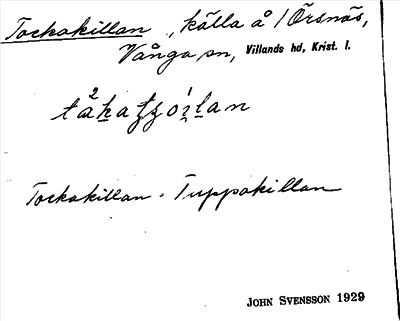 Tockakillan, källa å / Örsnäs,
Vånga sn, Villands hd, Krist. l.
Tockakillan = Tuppakillan
JOHN SVENSSON 1929